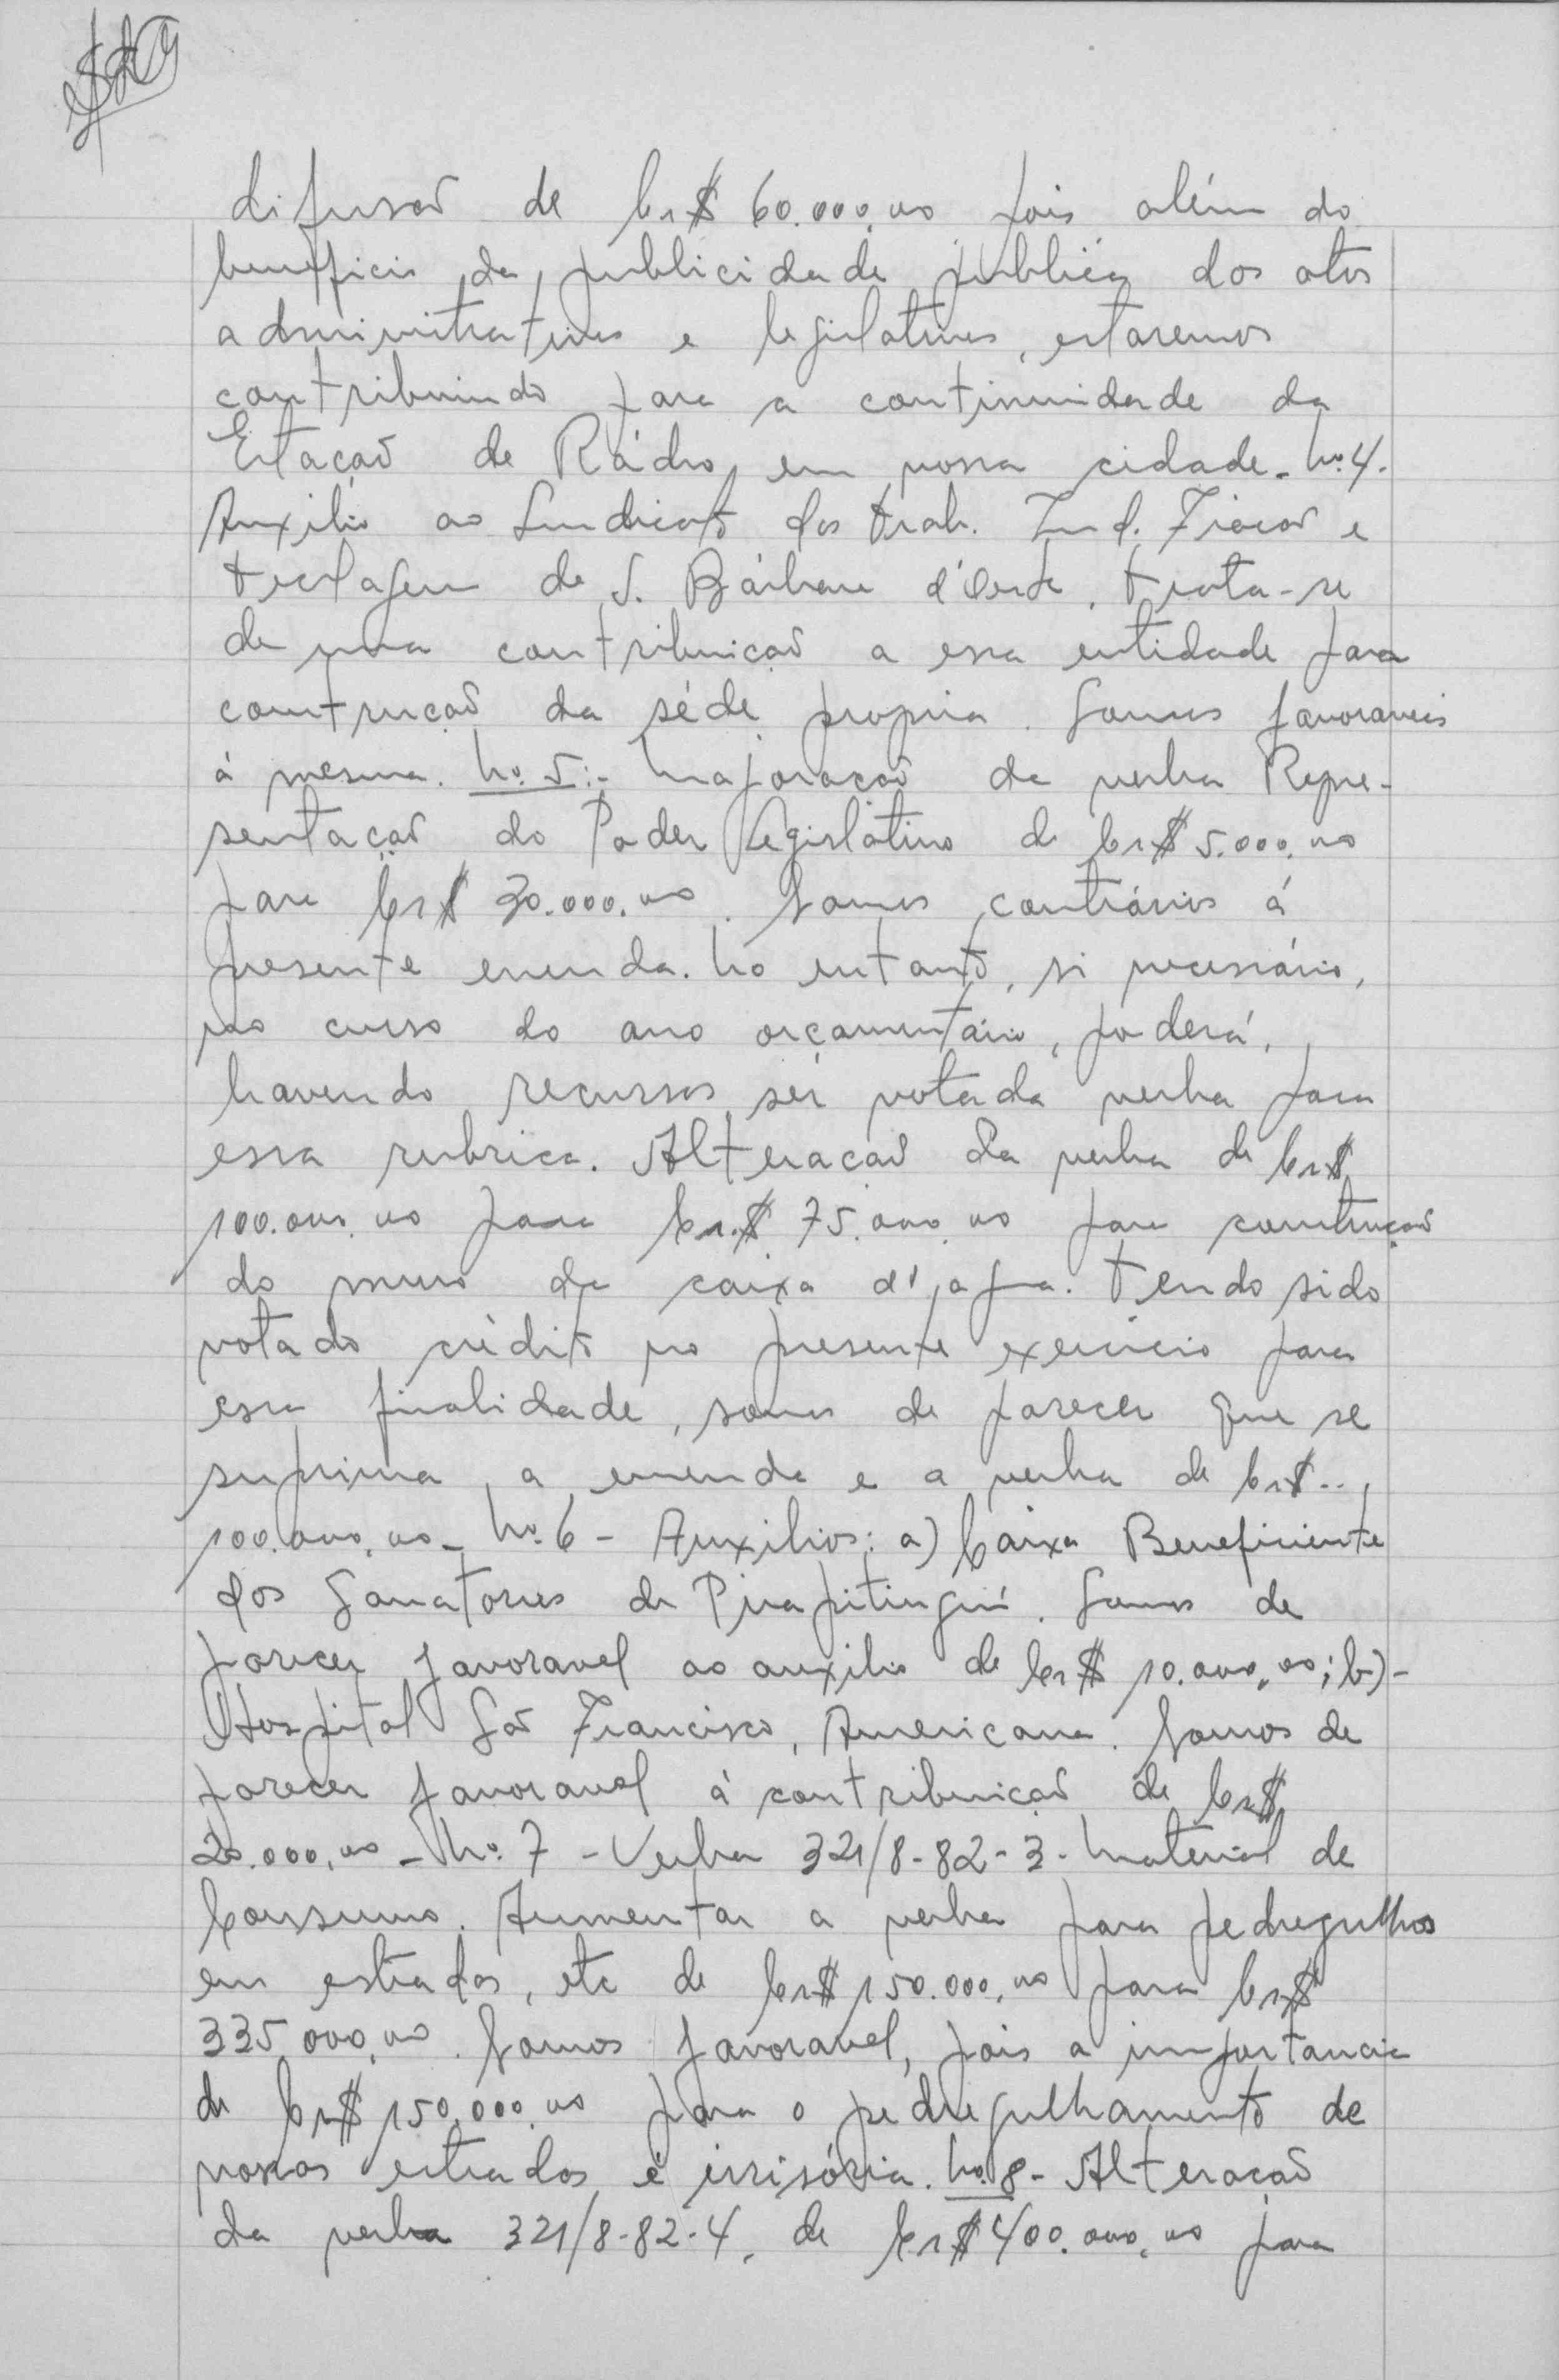 difusão de Cr$ 60.000,00 pois além do
beneficio da publicidade pública dos atos
administrativos e legislativos, estaremos
contribuindo para a continuidade da
Estação de Rádio, em nossa cidade. Nº 4.
Auxílio ao Sindicato dos Trab. Ind. Fiação e
Teclagem de S. Bárbara d'Oeste. Trata-se
de uma contribuição a essa entidade para
construção da séde propria. Somos favoraveis
á mesma. Nº 5:- Majoração da verba Repre-
sentação do Poder Legislativo de Cr$ 5.000,00
para Cr$ 30.000,00. Somos contrários á
presente emenda. No entanto, si necessário,
no curso do ano orçamentário, poderá,
havendo recursos, ser votada verba para
essa rubrica. Alteração da verba de Cr$
100.000,00 para Cr.$ 75.000,00 para construção
do muro da caixa d'agua. Tendo sido
votado crédito no presente exercício para
essa finalidade, somos de parecer que se
suprima a emenda e a verba de Cr$..
100.000,00 - Nº 6 - Auxilios: a) Caixa Beneficiente
dos Sanatorios de Pirapitinguí. Somos de
parecer favoravel ao auxilio de Cr$ 10.000,00; b)-
Hospital São Francisco, Americana. Somos de
parecer favoravel á contribuição de Cr$
20.000,00 - Nº 7 - Verba 321/8-82-3- Material de
Consumo. Aumentar a verba para pedregulhos
em estradas, etc de Cr$ 150.000,00 para Cr$
335.000,00. Somos favoravel, pois a importancia
de Cr$ 150.000,00 para o pedregulhamento de
nossas estradas é irrisória. Nº 8 - Alteração
da verba 321/8-82-4, de Cr$ 400.000,00 para